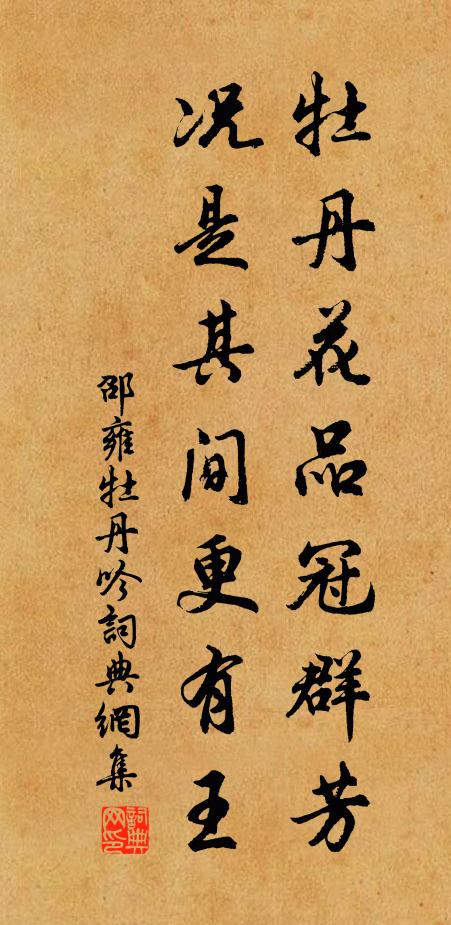 牡丹花品冠群芳
况是其间更有王
邵雍牡丹吟詞典網集
詞典
网印